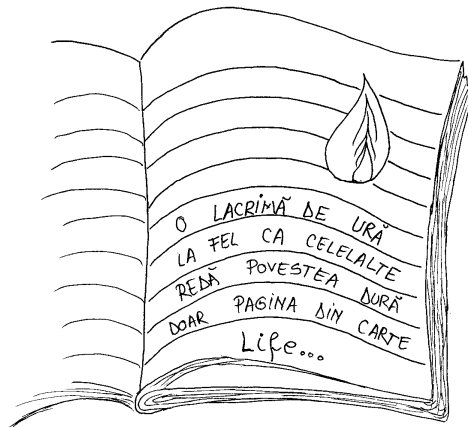 O LACRIMĂ DE URĂ
LA FEL CA CELELALTE
REDĂ POVESTEA DURĂ
DOAR PAGINA DIN CARTE
Life...